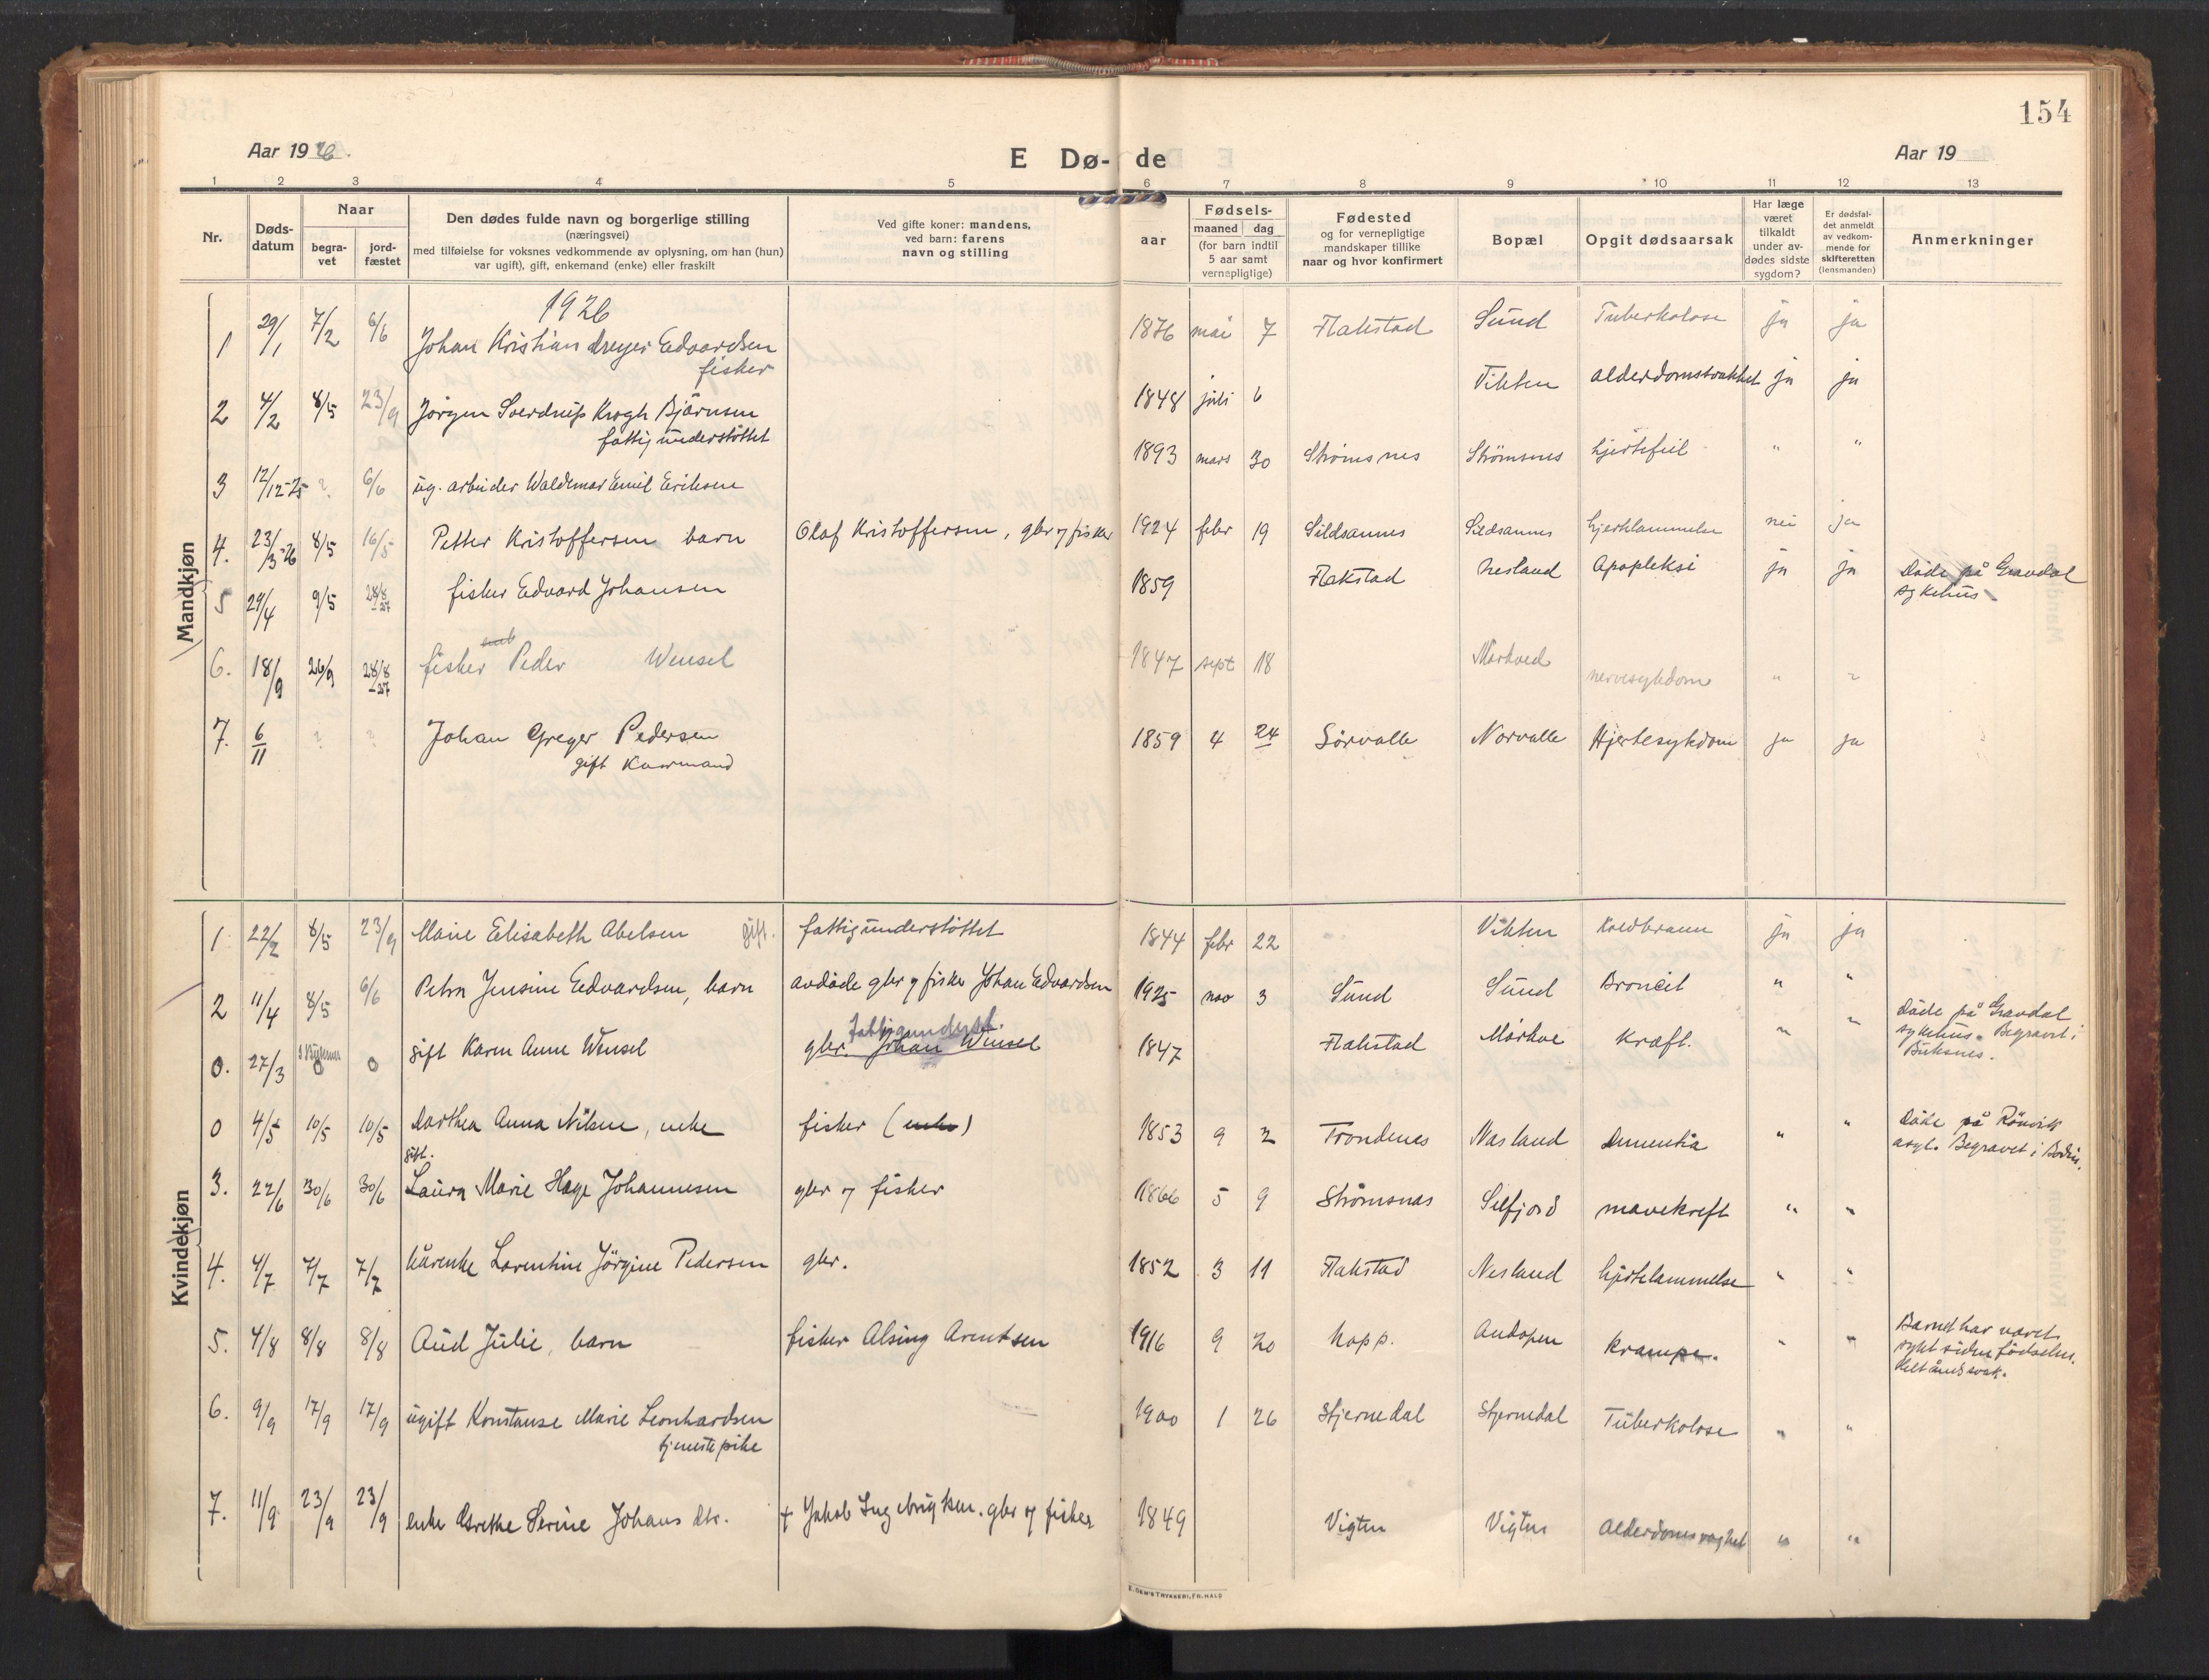 154
Aar 1926.
E Dø- de
Aar 19
1 2 3 4 5 6 7 8 9 10 11 12 13
Nr.
Døds-
datum
Naar
begra-
vet
jord-
fæstet
Den dødes fulde navn og borgerlige stilling
(næringsvei)
med tilføielse for voksnes vedkommende av oplysning, om han (hun)
var ugift), gift, enkemand (enke) eller fraskilt
Ved gifte koner: mandens,
ved barn: farens
navn og stilling
aar
Fødsels-
maaned dag
(for barn indtil
5 aar samt
vernepliglige)
Fødested
og for vernepligtige
mandskaper tillike
naar og hvor konfirmert
Bopæl
Opgit dødsaarsak
Har læge
været
tilkaldt
under av-
dødes sidste
sygdom?
Er dødsfal-
det anmeldt
av vedkom-
mende for
skifteretten
(lensmanden)
Anmerkninger
Mandkjøn
1926
1 29/1 7/2 6/6 Johan Kristian dreyer Edvardsen 1876 mai 7 Flakstad Sund Tuberkolose ja ja
fisker
2 4/2 8/5 23/9 Jørgen Sverdrup Krogh Bjørnsen 1848 juli 6 Vikten alderdomssvakhet ja ja
fattigunderstöttet
3 12/12-25 ? 6/6 ug. arbeider Waldemar Emil Eriksen 1893 mars 30 Strømsnes Strømsnes hjertefeil " "
4. 23/3-26 8/5 16/5 Petter Kristoffersen barn Olaf Kristoffersen, gbr og fisker 1924 febr 19 Sildsannes Sildsannes hjertelammelse nei ja
5 29/4 9/5 28/8-27 fisker Edvard Johansen 1859 Flakstad Nesland Apopleksi ja ja Døde på Gravdal
sykehus
6. 18/9 26/9 28/8-27 fisker Peder Wensel 1847 sept 18 Mørkved nervesykdom " "
7. 6/11 ? ? Johan Greger Pedersen 1859 4 24 Sørvalle Norvalle Hjertesykdom ja ja
gift Kaarmand
Kvindekjøn
1 22/2 8/5 23/9 Marie Elisabeth Abelsen gift. fattigunderstöttet 1844 febr 22 Vikten Koldbrann ja ja
2 11/4 8/5 6/6 Petra Jensine Edvardsen, barn avdøde gbr og fisker Johan Edvardsen 1925 nov 3 Sund Sund Broncit " "
0. 27/3 0 0 gift Karen Anne Wensel gbr. Johan Wensel 1847 Flakstad Mørkve Kræft. " " Døde på Gravdal
sykehus. Begravet i
Buksnes.
0 4/5 10/5 10/5 Dorthea Anna Nilsen, enke fisker (enke) 1853 9 2 Trondenes Nasland Dementia " " Døde på Rönvik
asyl. Begravet i Bodin.
gift.
3. 22/6 30/6 30/6 Laura Marie Hage Johannesen gbr og fisker 1866 5 9 Strømsnas Selfjord mavekreft " "
4. 4/7 7/7 7/7 kårenke Lorentine Jörgine Pedersen gbr. 1852 3 11 Flakstad Nesland hjertelammelse " "
5. 4/8 8/8 8/8 Aud Julie, barn fisker Alsing Arentsen 1916 9 20 Napp. Andopen krampe. " " Barnet har været
sykt siden födselen.
Helt åndssvak.
6. 9/9 17/9 17/9 ugift Konstanse Marie Leonhardsen 1900 1 26 Stjernedal Stjernedal Tuberkolose " "
tjenestepike
7. 11/9 23/9 23/9 enke Grethe Serine Johans dtr. + Jakob Ingebrigtsen. gbr og fisker 1849 Vigten Vigten Alderdomsvaghet " "
E. DEM'S TRYKKERI, FR.HALD